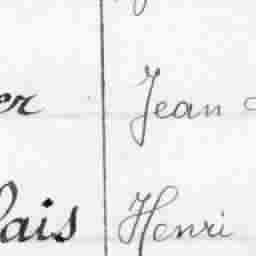 er Jean
lais Henri